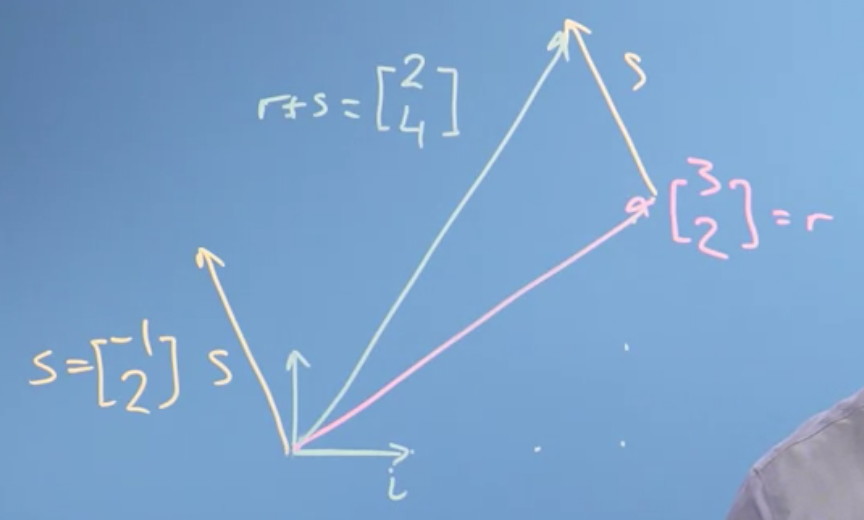 r+s = [2
4]
s
[3
2] = r
s = [-1
2] s
i